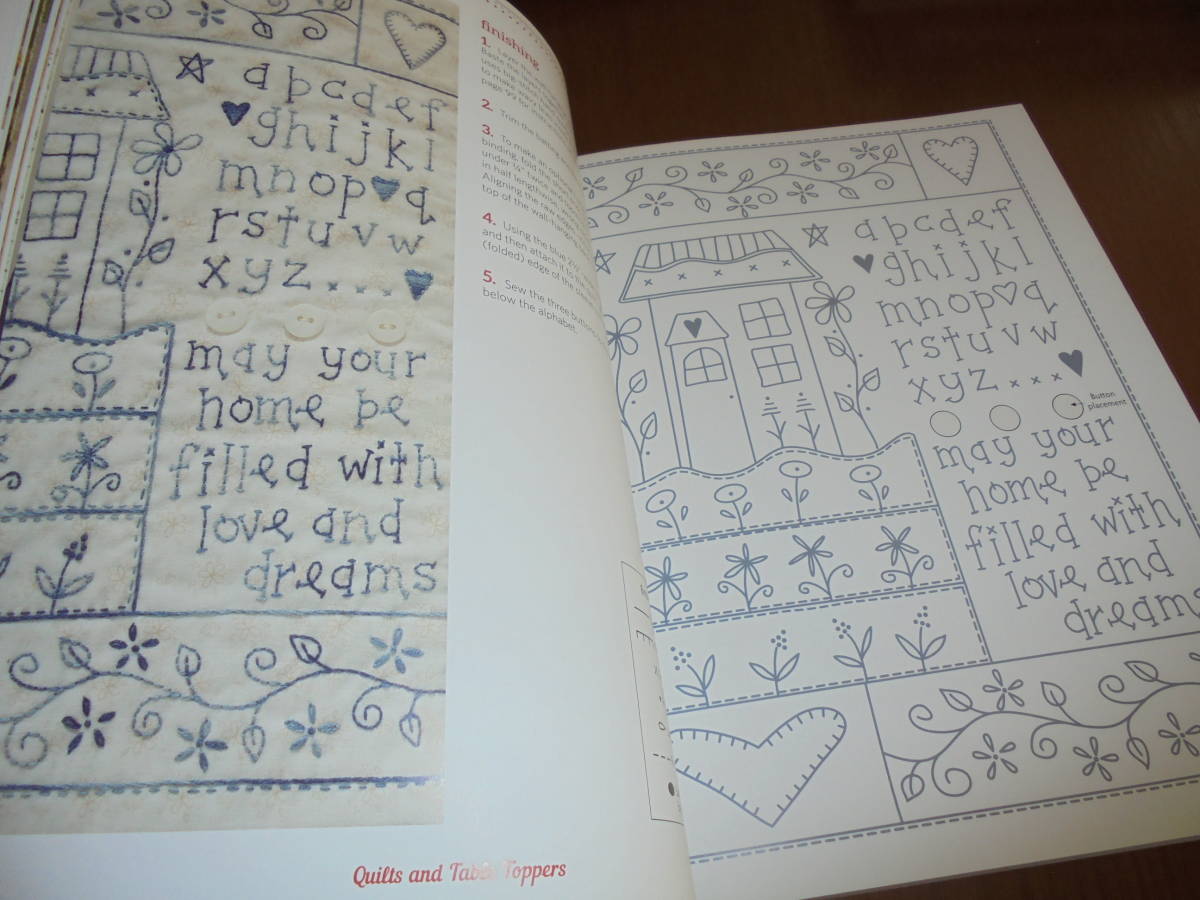 a b c d e f
g h i j k l
m n o p q
r s t u v w
x y z . . .
may your
home be
filled with
love and
dreams
finishing
1. Layer the
Baste the
uses big-stitch
to make
page 99 for
2. Trim the batting
3. To make an
binding, fold the
under ¼" twice and
in half lengthwise,
Aligning the raw edges,
top of the wall-hanging
4. Using the blue 2½"
and then attach it to the
(folded) edge of the
5. Sew the three buttons
below the alphabet.
Quilts and Table Toppers
a b c d e f
g h i j k l
m n o p q
r s t u v w
x y z . . .
Button
placement
may your
home be
filled with
love and
dreams